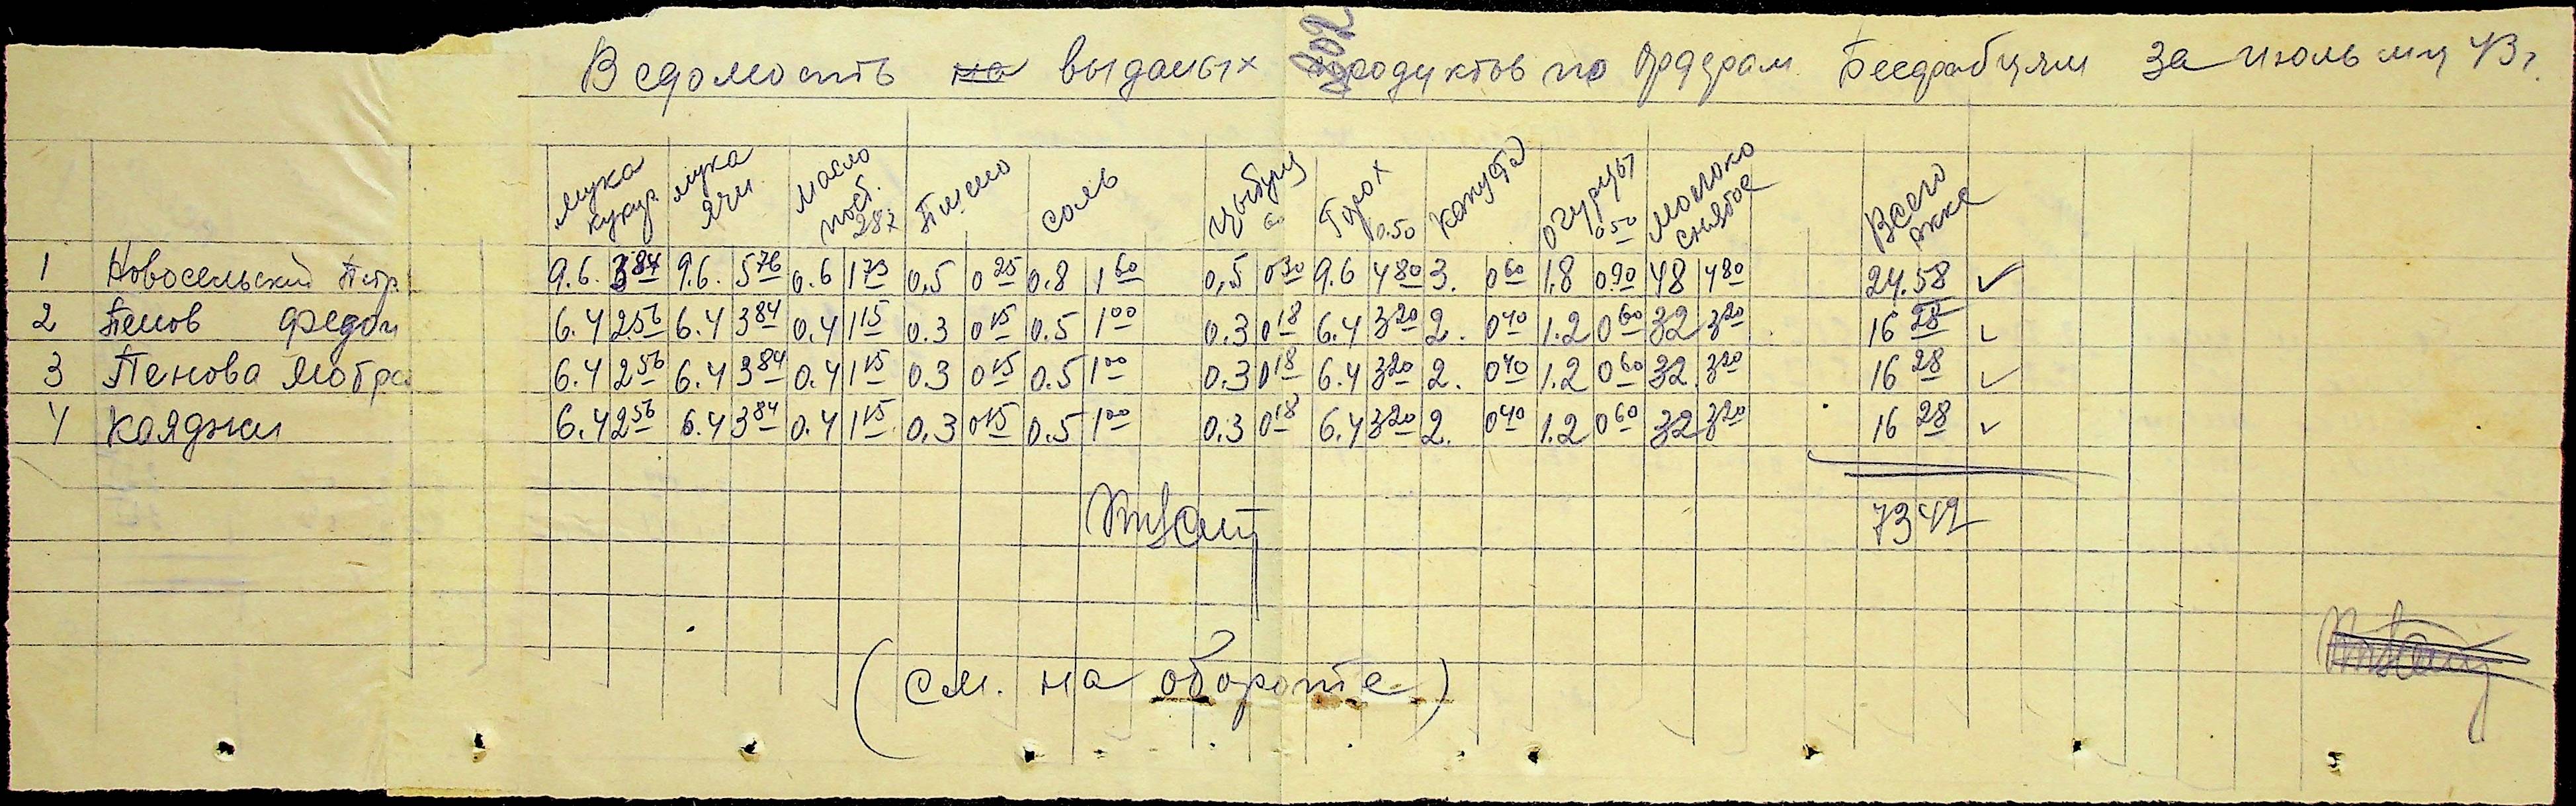 Ведомость на выданых продуктов по Ордерам за июль м-ц 43 г.
мука кукур. мука ячм. масло пост. Пшено соль цыбуля Горох 0.50 капуста огурцы 0 50 молоко снятое Всего
1 Новосельский Петр 9.6. 3 84 9.6. 5 76 0.6 1 73 0,5 0 25 0.8 1 60 0,5 0 30 9.6 4 80 3. 0 60 1.8 0.90 48 4 80 24.58 ✓
2 Пенов Федор 6.4 2 56 6.4 3 84 0.4 1 15 0.3 0 15 0.5 1 00 0.3 0 18 6.4 3 20 2. 0 40 1.2 0 60 32 3 20 16 28 ✓
3 Пенова 6.4 2 56 6.4 3 84 0.4 1 15 0.3 0 15 0.5 1 00 0.3 0 18 6.4 3 20 2. 0 40 1.2 0 60 32 3 20 16 28 ✓
4 Кояджи 6.4 2 56 6.4 3 84 0.4 1 15 0.3 0 15 0.5 1 00 0.3 0 18 6.4 3 20 2. 0 40 1.2 0 60 32 3 20 16 28 ✓
73 42
(см. на обороте)